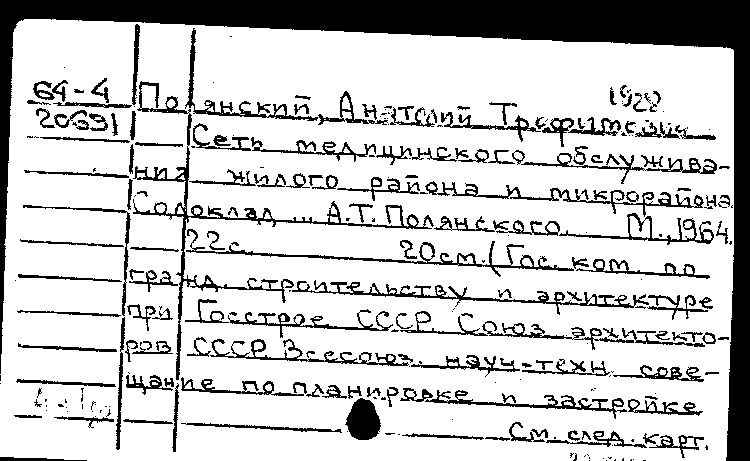 1928
64-4 Полянский, Анатолий Трофимович
20691 Сеть медицинского обслужива-
ния жилого района и микрорайона
Содоклад ... А.Т. Полянского. М., 1964.
22 с. 20 см. (Гос. ком. по
гражд. строительству и архитектуре
при Госстрое СССР. Союз архитекто-
ров СССР. Всесоюз. науч-техн. сове-
щание по планировке и застройке
См. след. карт.